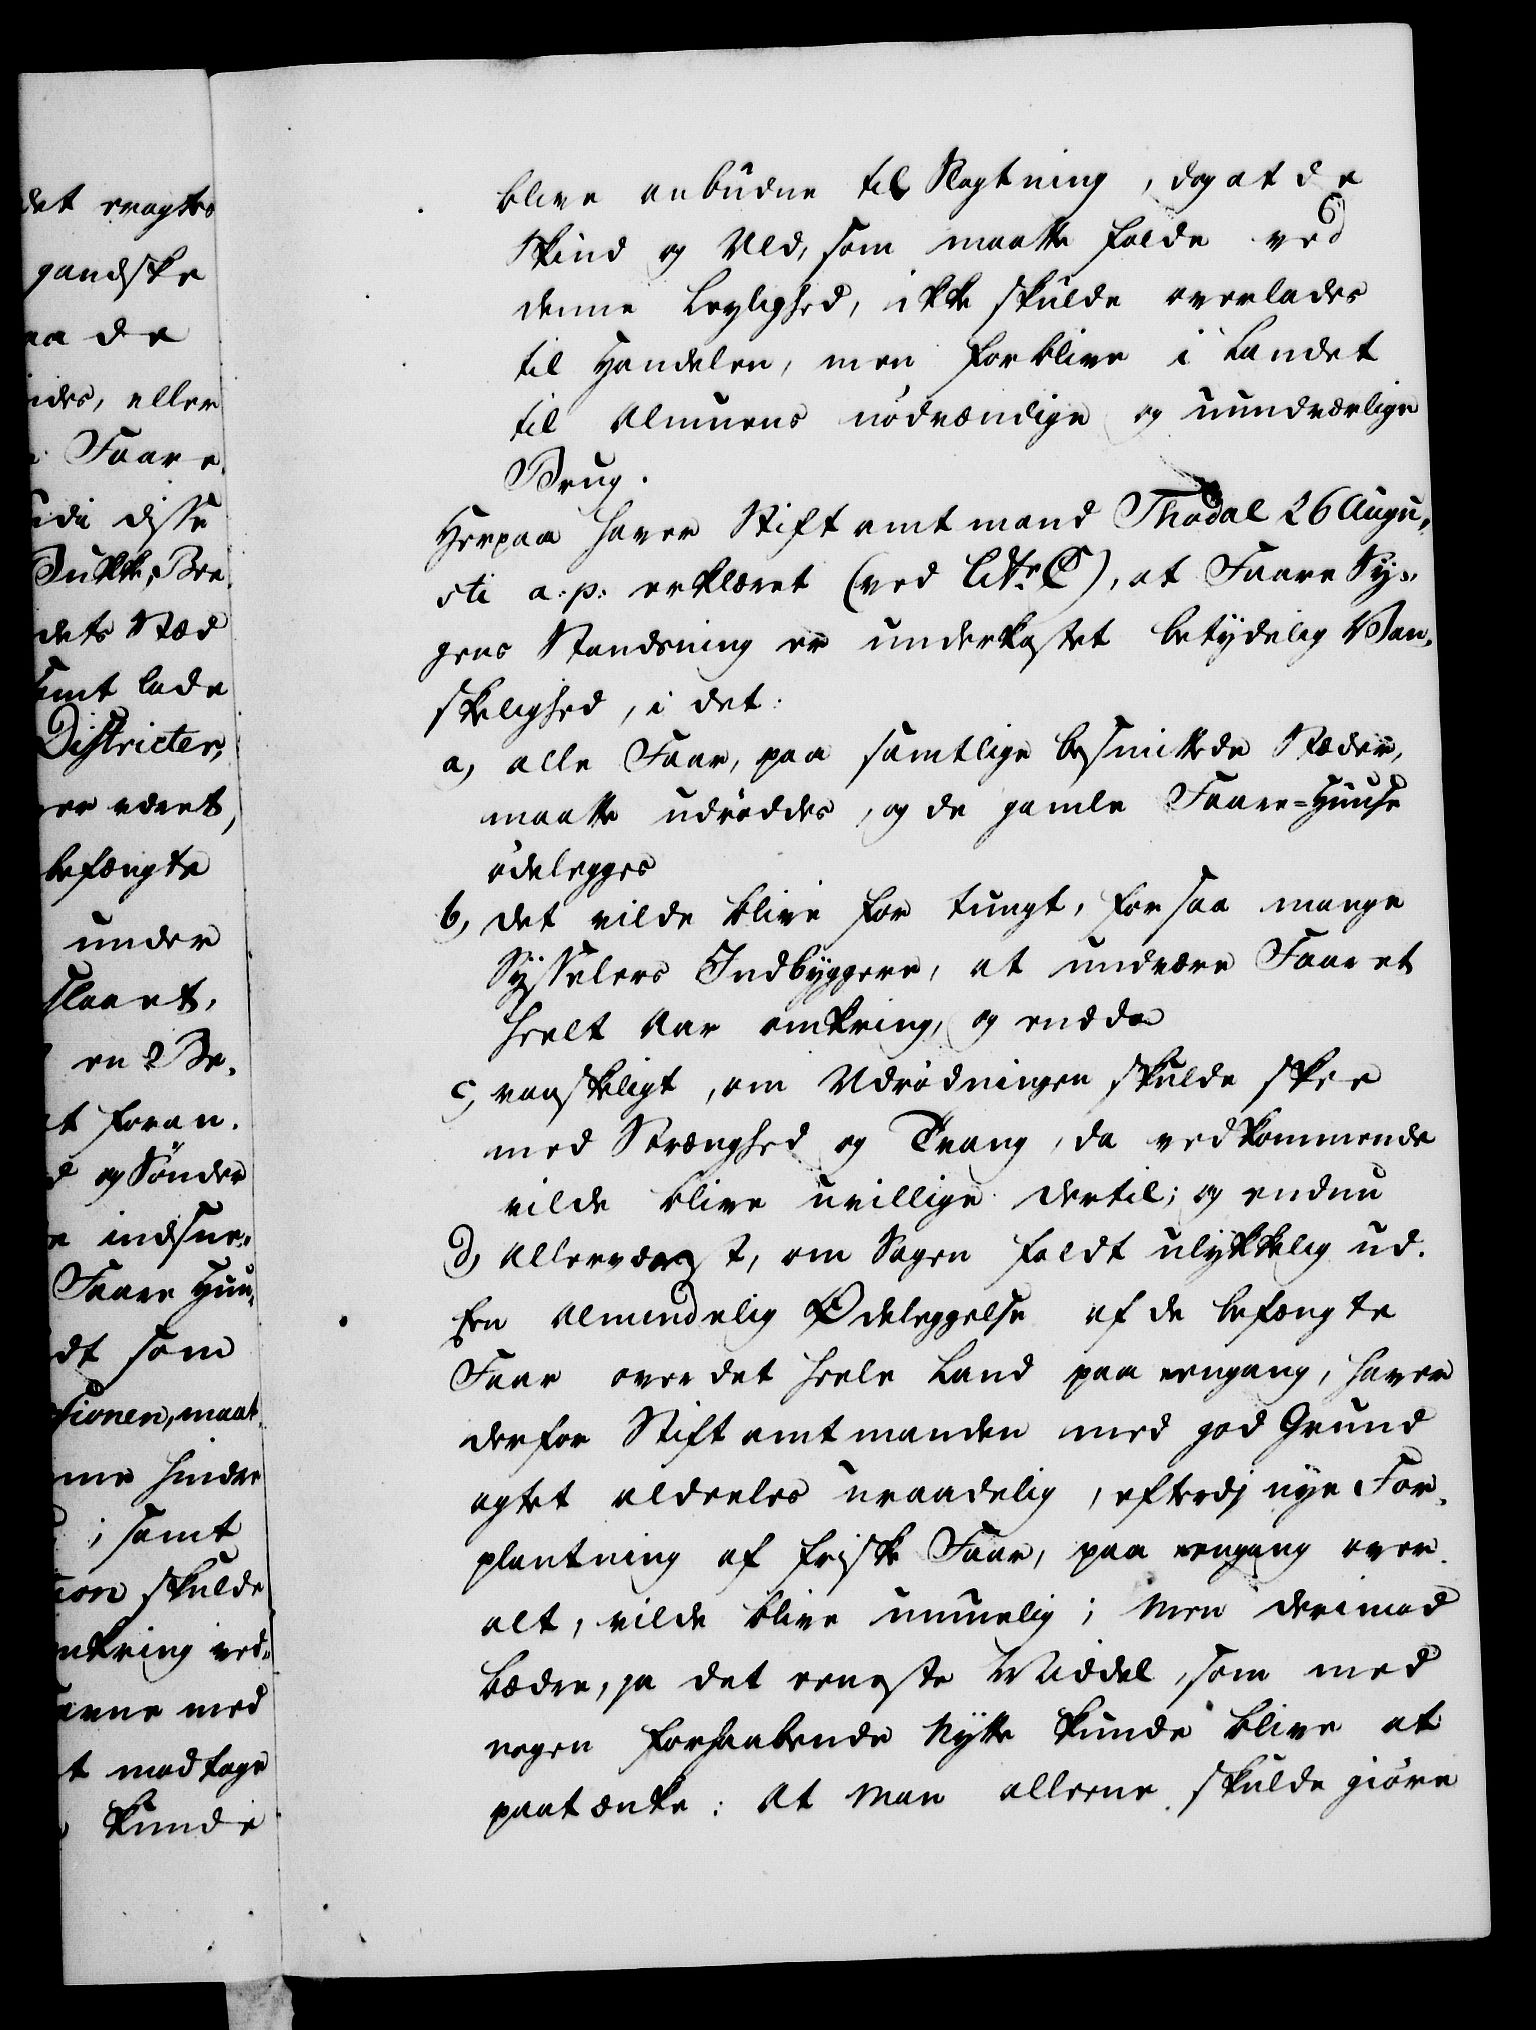 det eragtes
gandske
aa de
ides, eller
Faare
idi disse
Bukke, Bee-
dets Stæd
samt lade
Districter,
er været,
befængte
under
slaaet,
en 2 Be-
t foran-
d og Sönder
e indsne-
Faare Huu-
dt som
sionen, maat-
me hindre
; samt
ion skulde
mkring ved-
erne med
t modtage
kunde
blive anbudne til Slagtning, dog at de
Skind og Uld, som maatte falde ved
denne Leylighed, ikke skulde overlades
til Handelen, men forblive i Landet
til Almuens nödvendige og uundværlige
Brug.
Herpaa haver Stiftamtmand Thodal 26 Augu-
sti a: p: erklæret (ved Litr. C), at Faare Sy-
gens Standsning er underkastet betydelig Van-
skelighed, i det:
a, alle Faar, paa samtlige besmittede Stæder,
maatte udröddes, og de gamle Faare-Huuse
ödelegges
b, det vilde blive for tungt, for saa mange
Sysselers Indbyggere, at undvære Faar et
heelt Aar omkring, og endda
c, vanskeligt, om Udrödningen skulde skee
med Strænghed og Tvang, da vedkommende
vilde blive uvillige dertil; og endnu
d, Allerværst, om Sagen faldt ulykkelig ud.
Een Almindelig Ödeleggelse af de befængte
Faar over det heele Land paa eengang, haver
derfor Stiftamtmanden med god Grund
agtet aldeeles uraadelig, efterdj nye For-
plantning af friske Faar, paa eengang over-
alt, vilde blive umuelig; Men derimod
bædre, ja det eeneste Middel, som med
nogen forhaabende Nytte kunde blive at
paatænke: At Man alleene skulde giöre